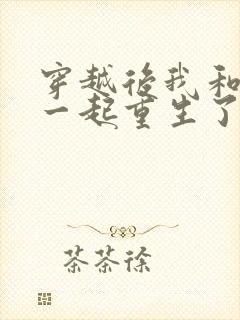 穿越後我和
一起重生了
茶茶徐